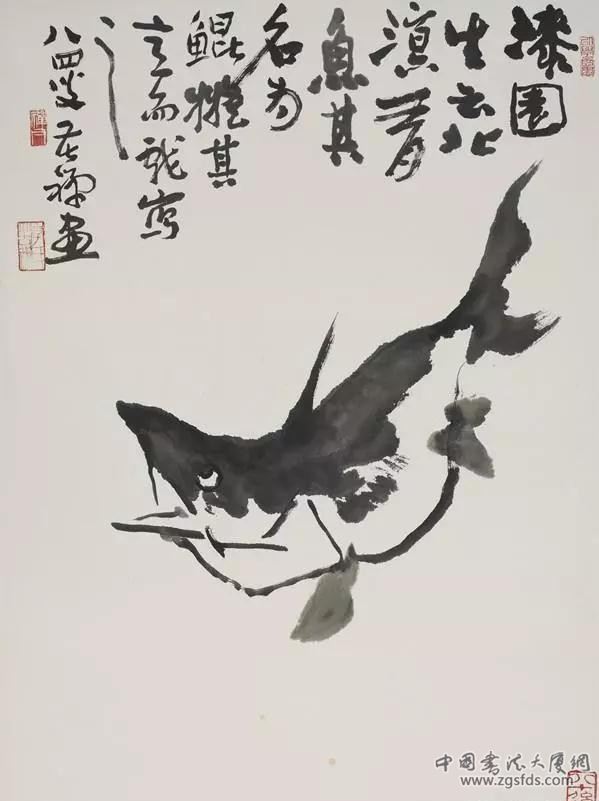 漆園
生云北
溟有
魚其
名为
鯤擬其
言而戏写
之
八四叟苦禅画
中國書法大厦網
www.zgsfds.com